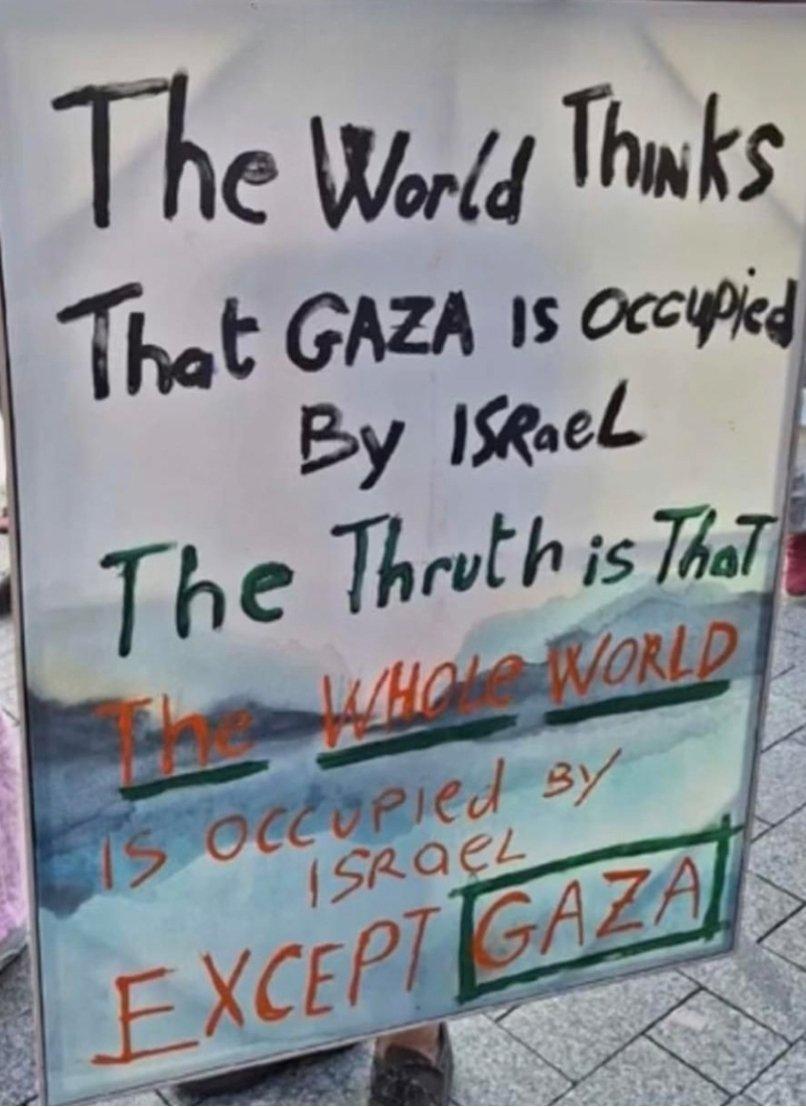 The World Thinks
That GAZA is occupied
By ISRaeL
The Thruth is That
The WHOLe WORLD
is occupied BY
ISRaeL
EXCEPT GAZA